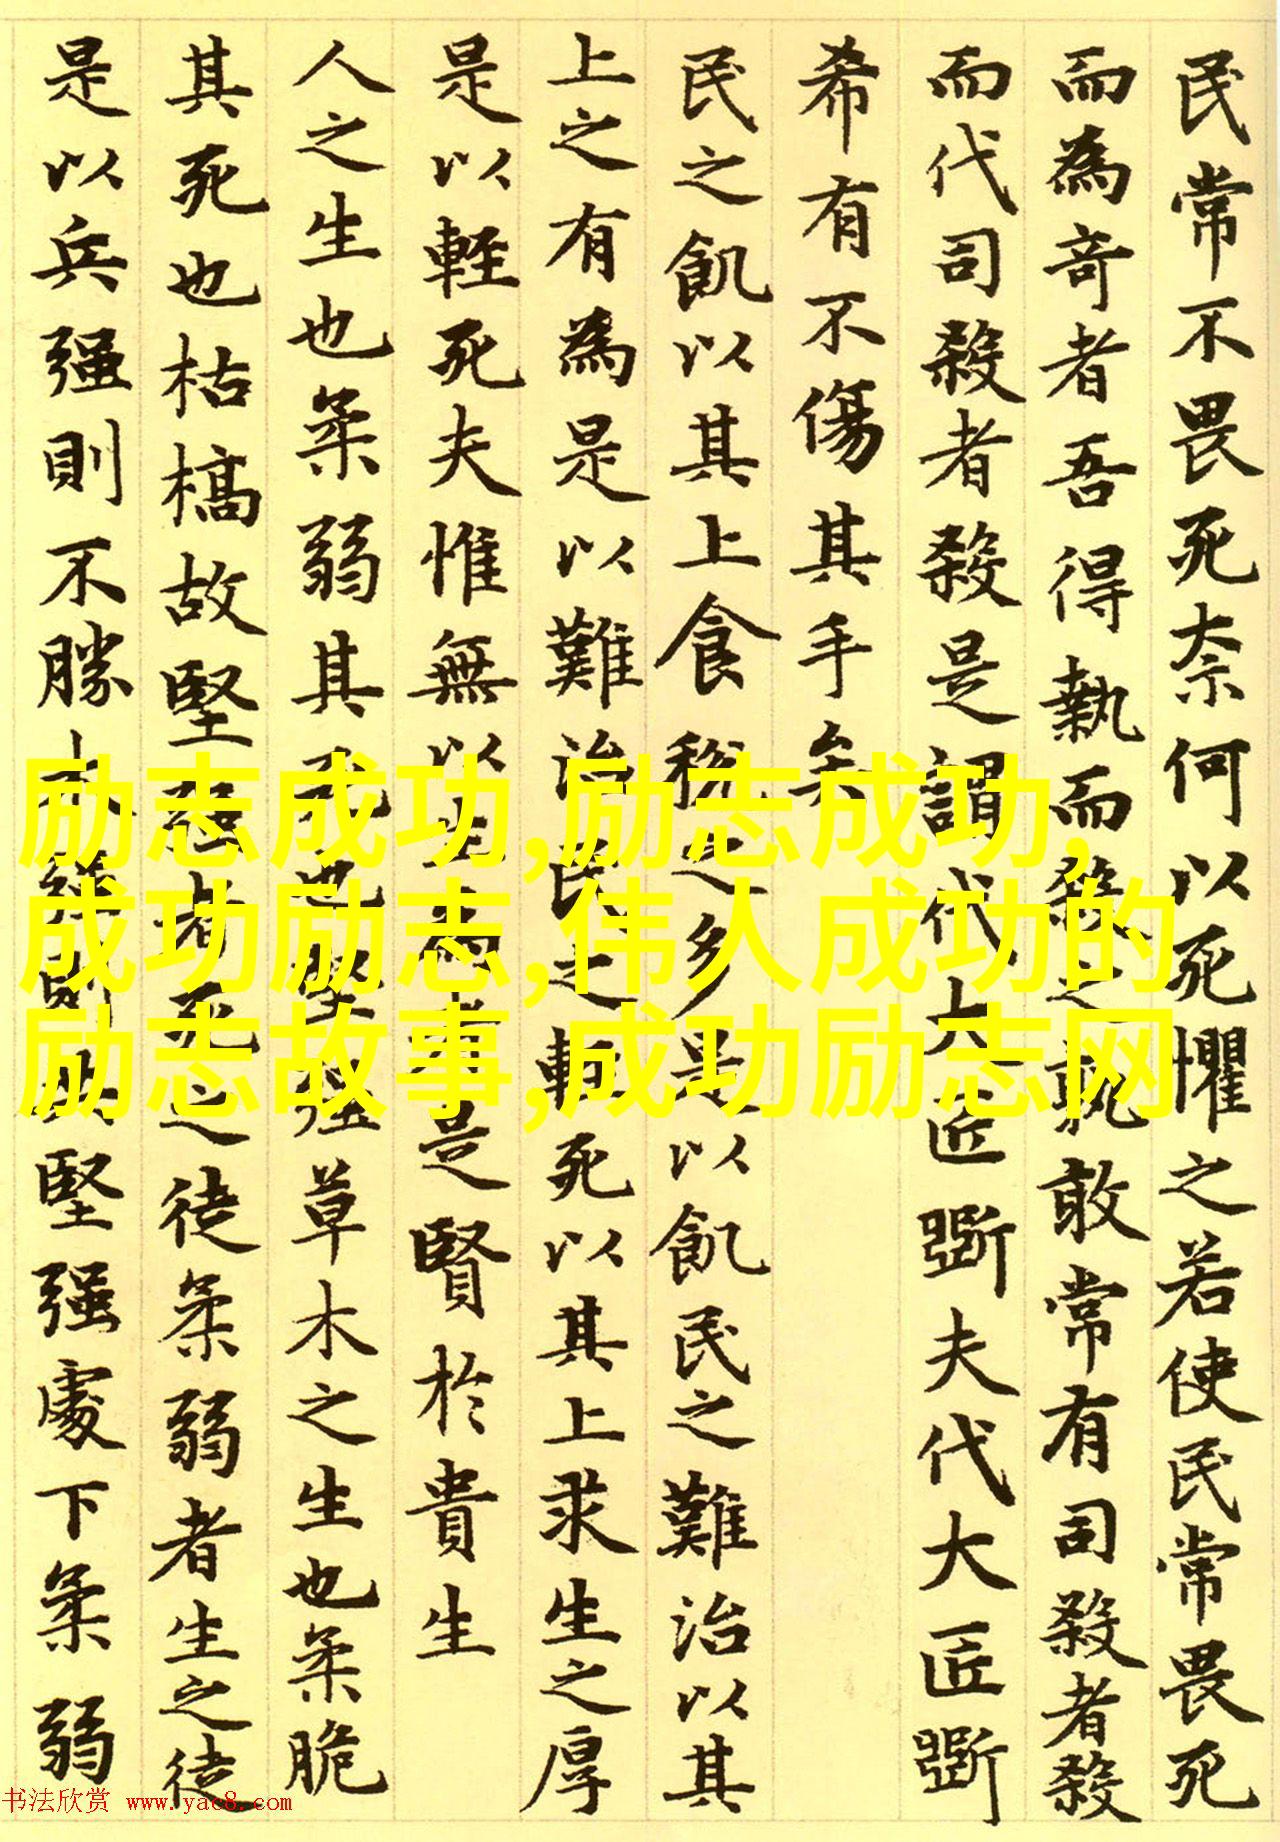 民常不畏死奈何以死懼之若使民常畏死
而為奇者吾得執而殺之孰敢常有司殺者殺
而代司殺者殺是謂代大匠斲夫代大匠斲
希有不傷其手矣
民之飢以其上食稅之多是以飢民之難治以其
上之有為是以難治民之輕死以其上求生之厚
是以輕死夫惟無以生為者是賢於貴生
人之生也柔弱其死也堅强草木之生也柔脆
其死也枯槁故堅强者死之徒柔弱者生之徒
是以兵强則不勝木强則共堅强處下柔弱
励志成功,励志成功,
成功励志,伟人成功的
励志故事,成功励志网
书法欣赏 www.yac8.com